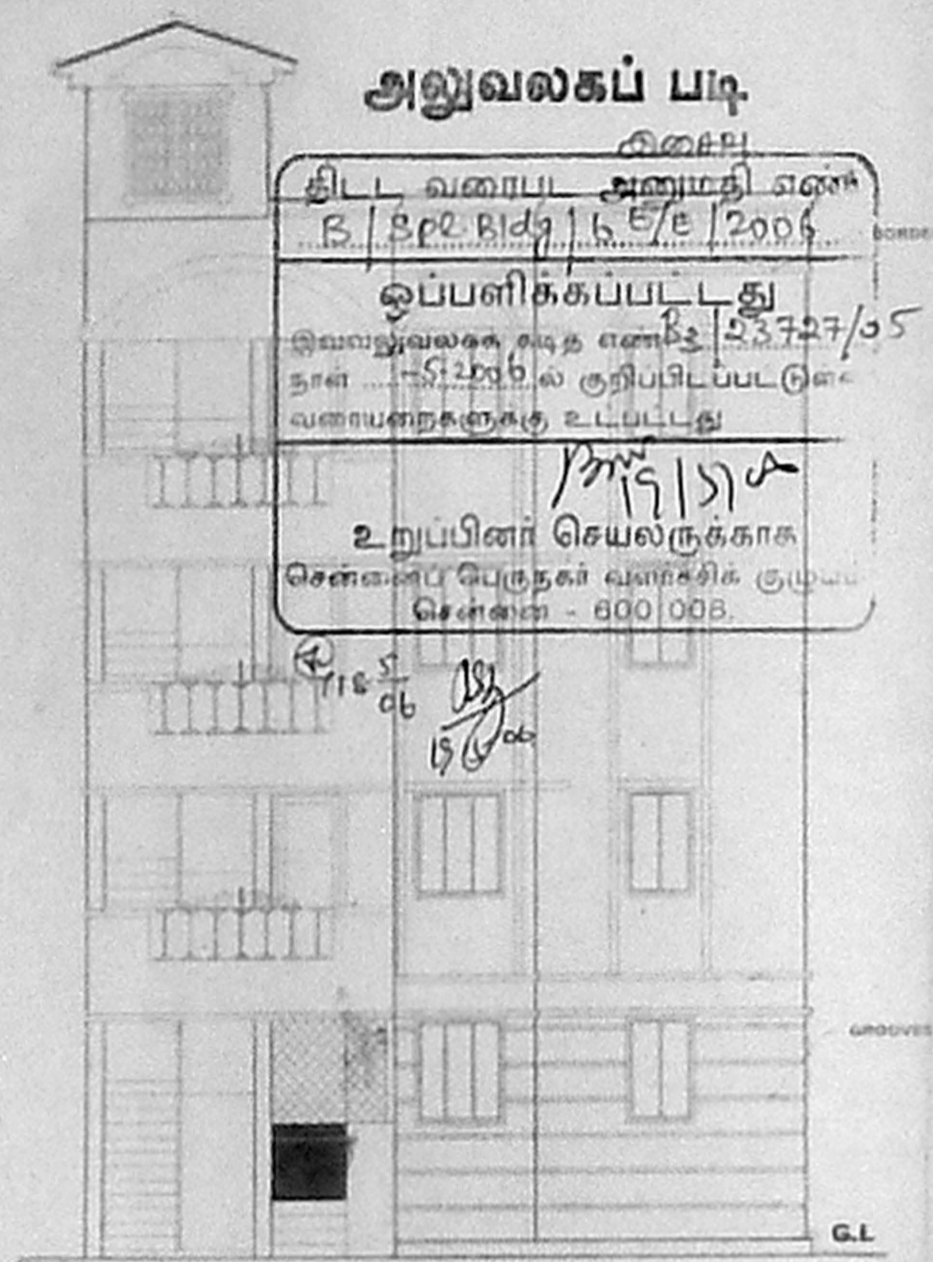 அலுவலகப் படி
இசைவு
திட்ட வரைபட அனுமதி எண்
B / Spl. Bldg / 6 E/E / 2006
BORDE
ஒப்பளிக்கப்பட்டது
இவ்வலுவலகக் கடித எண் B3 / 23727/05
நாள் -5-2006 ல் குறிப்பிடப்பட்டுள்ள
வரையறைகளுக்கு உட்பட்டது
உறுப்பினர் செயலருக்காக
சென்னைப் பெருநகர் வளர்ச்சிக் குழுமம்
சென்னை - 600 008.
GROOVES
G.L